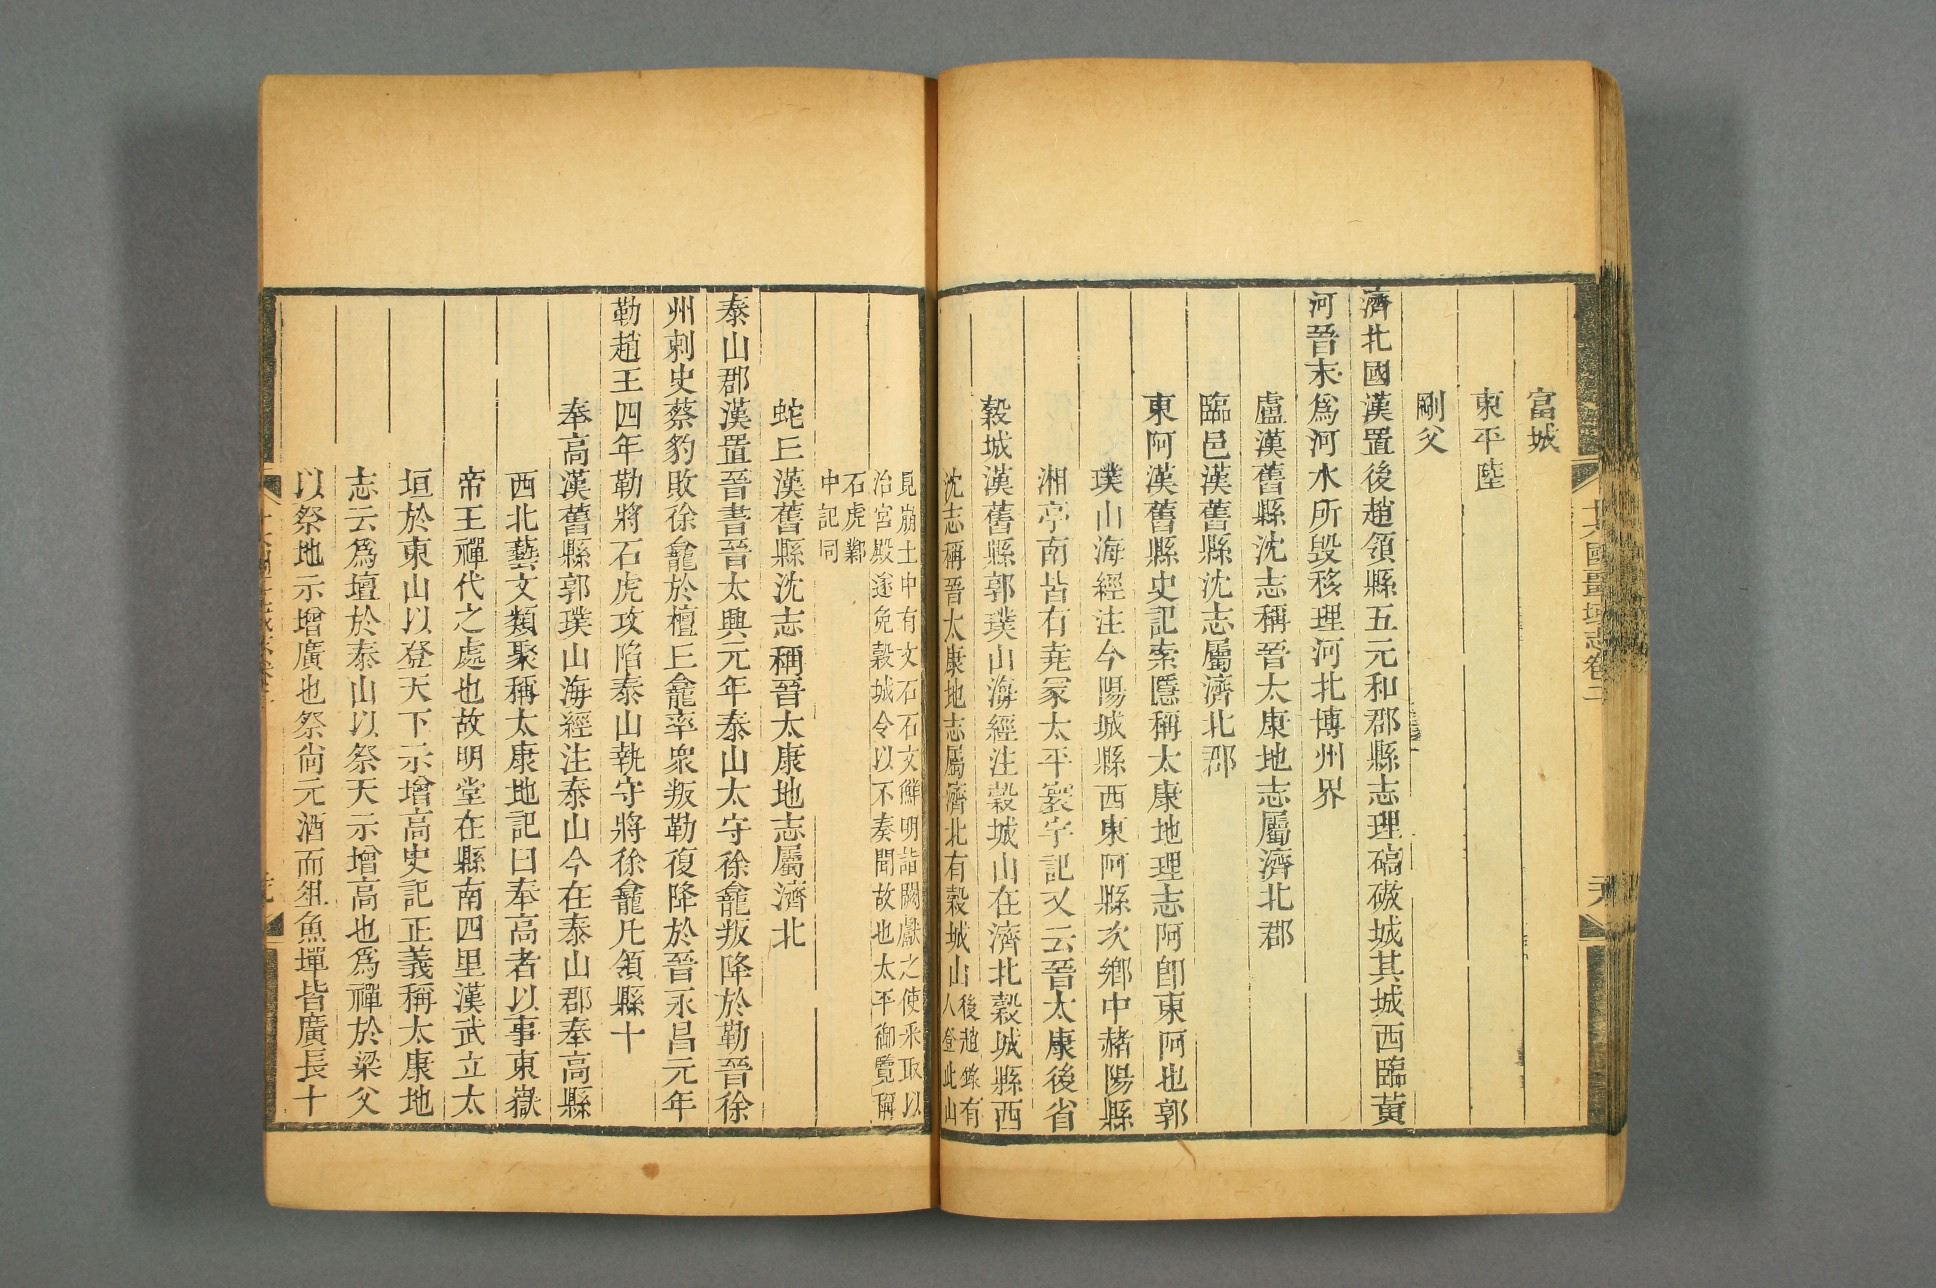 十六國疆域志卷二
富城
東平陸
剛父
濟北國漢置後趙領縣五元和郡縣志理碻磝城其城西臨黃
河晉末爲河水所毀移理河北博州界
盧漢舊縣沈志稱晉太康地志屬濟北郡
臨邑漢舊縣沈志屬濟北郡
東阿漢舊縣史記索隱稱太康地理志阿卽東阿也郭
璞山海經注今陽城縣西東阿縣次鄉中赭陽縣
湘亭南皆有堯冢太平寰宇記又云晉太康後省
穀城漢舊縣郭璞山海經注穀城山在濟北穀城縣西
沈志稱晉太康地志屬濟北有穀城山
後趙錄有
人登此山
見崩土中有文石石文鮮明詣闕獻之使采取以
治宮殿遂免穀城令以不奏聞故也太平御覽稱
石虎鄴
中記同
蛇丘漢舊縣沈志稱晉太康地志屬濟北
泰山郡漢置晉書晉太興元年泰山太守徐龕叛降於勒晉徐
州刺史蔡豹敗徐龕於檀丘龕率衆叛勒復降於晉永昌元年
勒趙王四年勒將石虎攻陷泰山執守將徐龕凡領縣十
奉高漢舊縣郭璞山海經注泰山今在泰山郡奉高縣
西北藝文類聚稱太康地記曰奉高者以事東嶽
帝王禪代之處也故明堂在縣南四里漢武立太
垣於東山以登天下示增高史記正義稱太康地
志云爲壇於泰山以祭天示增高也爲禪於梁父
以祭地示增廣也祭尙元酒而俎魚墠皆廣長十